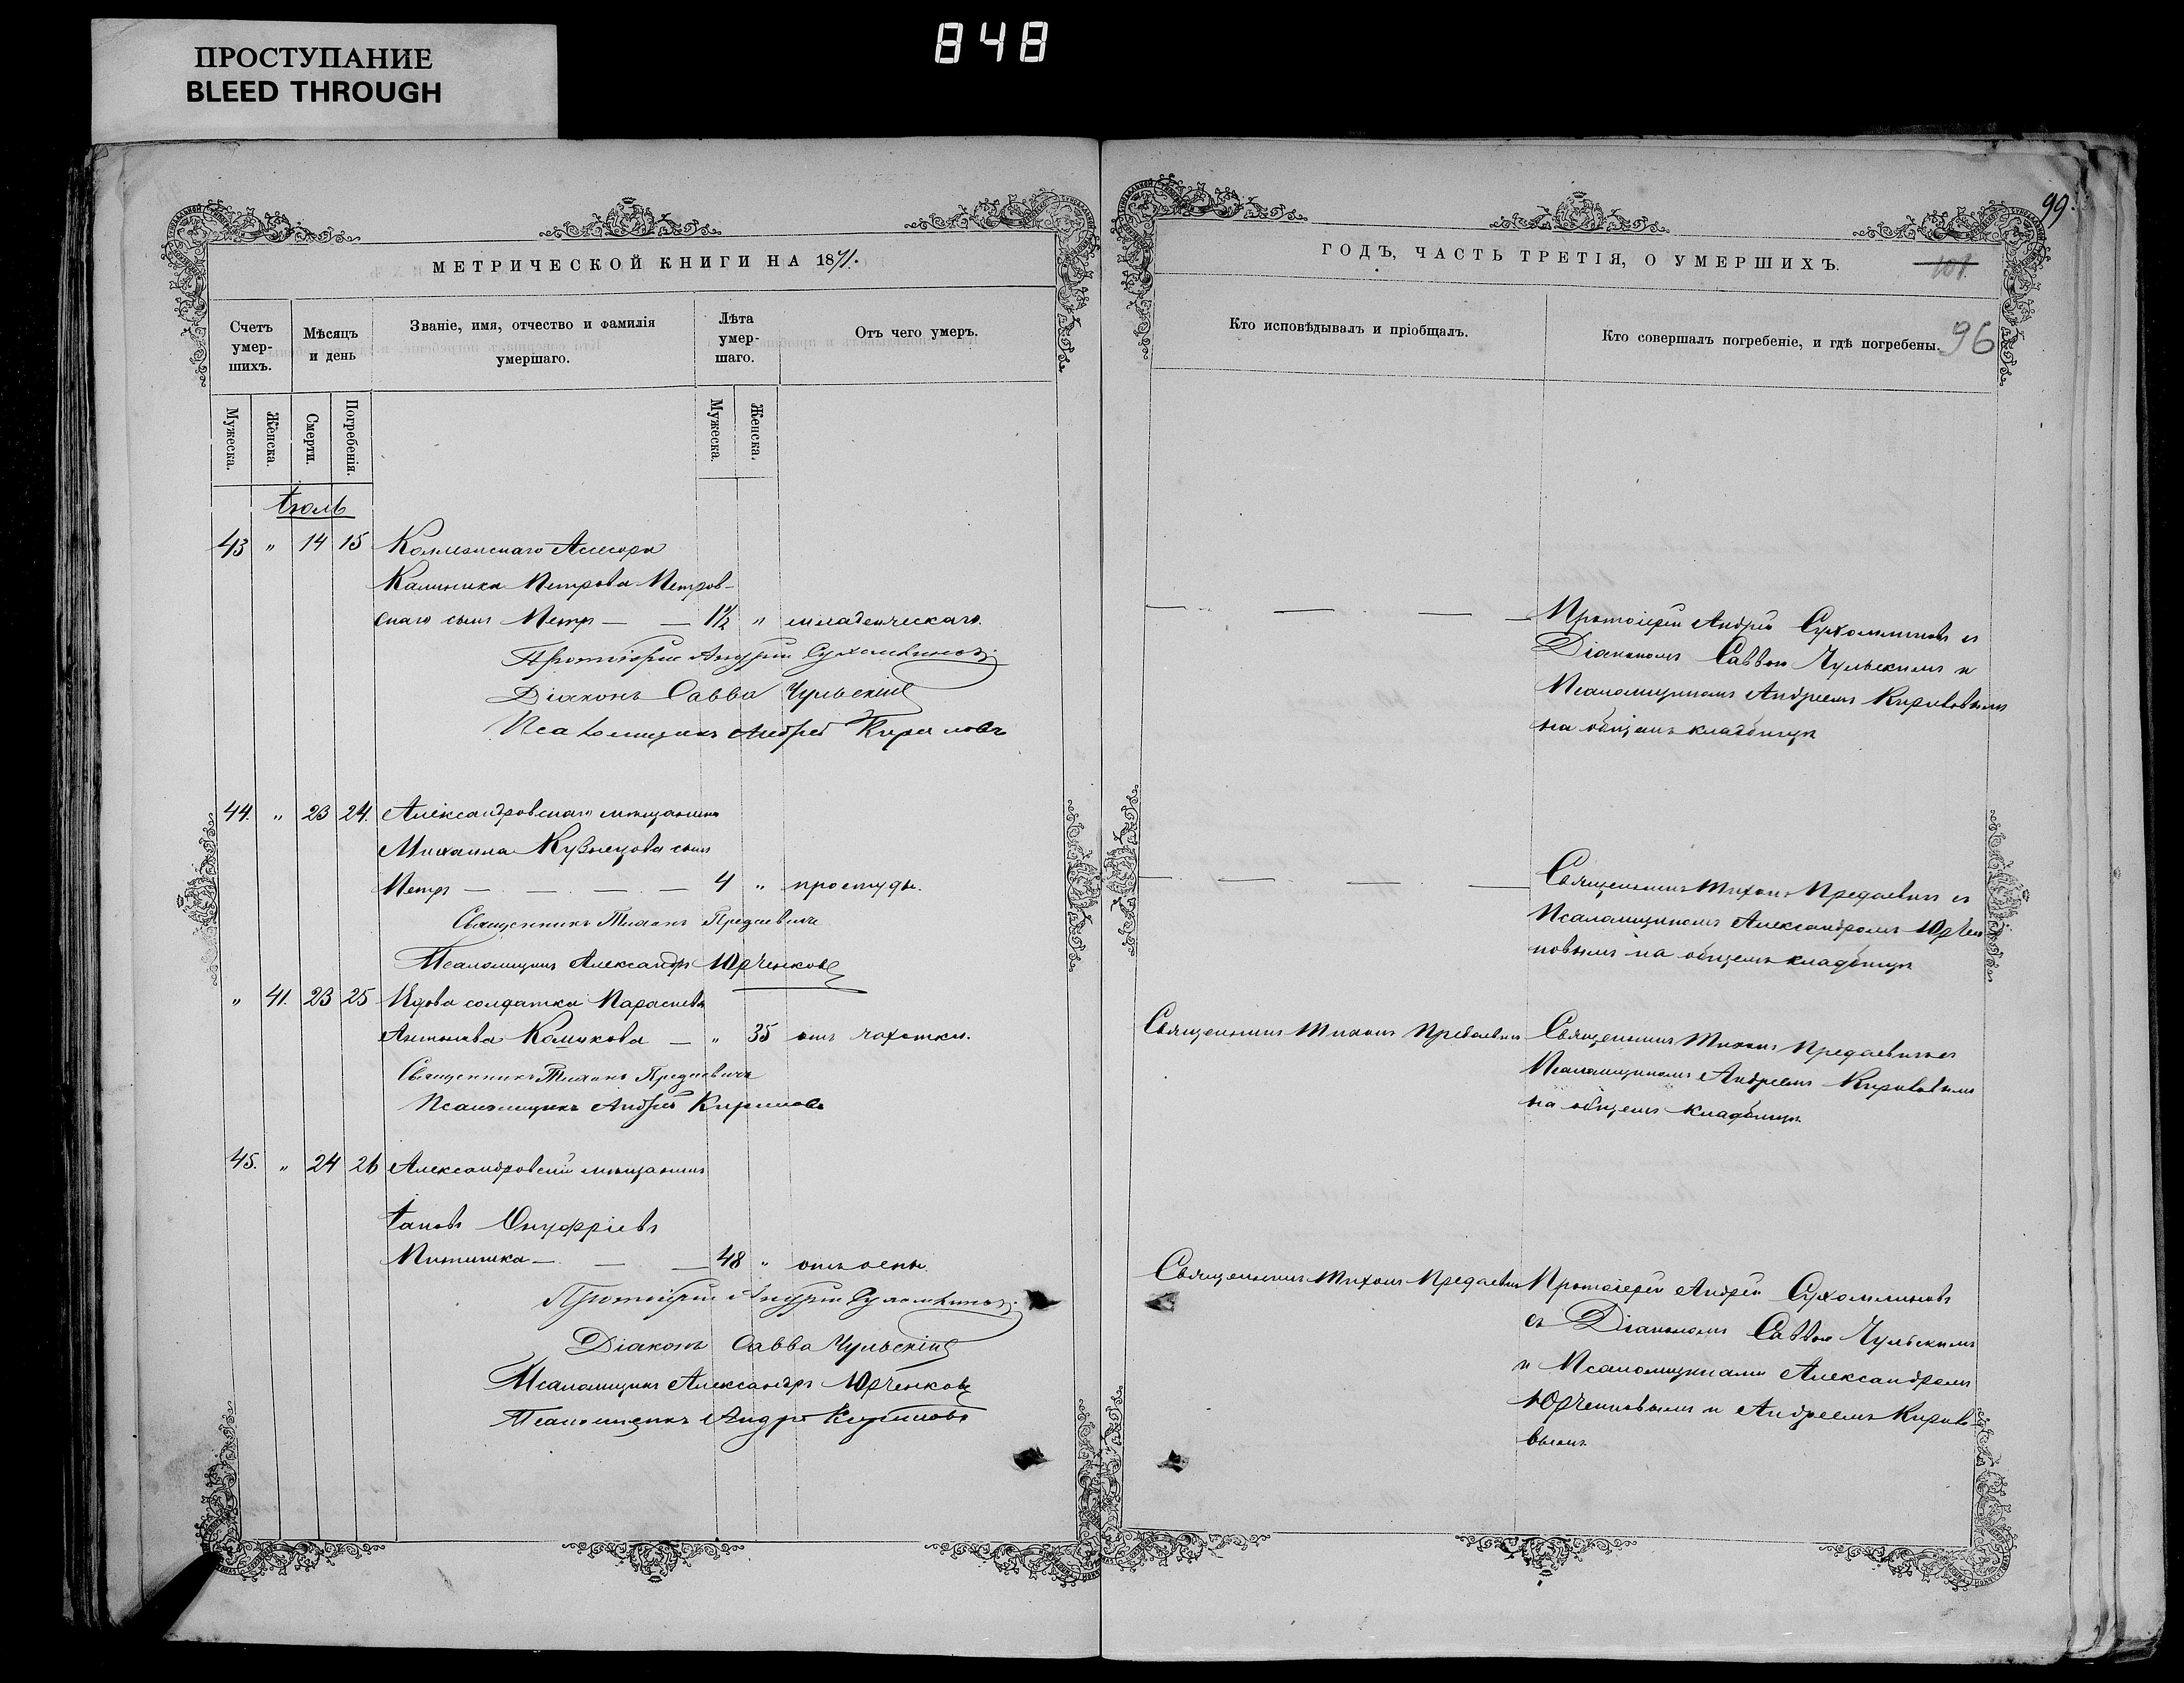 ПРОСТУПАНИЕ
BLEED THROUGH
848
МЕТРИЧЕСКОЙ КНИГИ НА 1871.
Счетъ умер-шихъ.
Мѣсяцъ и день
Званіе, имя, отчество и фамилія умершаго.
Лѣта умер-шаго.
Отъ чего умеръ.
Мужеска.
Женска.
Смерти.
Погребенія.
Мужеска.
Женска.
Іюль
43 " 14 15 Коллежскаго Ассесора
Калиника Петрова Петров-
скаго сынъ Петръ — — 1½ " младенческаго.
Протоіерей Андрей Сухомлиновъ
Діаконъ Савва Чульскій
Псаломщикъ Андрей Кириловъ
44. " 23 24. Александровскаго мѣщанина
Михаила Кузнецова сынъ
Петръ — — — — 4 " простуды.
Священникъ Тихонъ Предаевичъ
Псаломщикъ Александръ Юрченковъ
" 41. 23 25 Вдова солдатка Параскева
Антонова — " 35 отъ чахотки.
Священникъ Тихонъ Предаевичъ
Псаломщикъ Андрей Кириловъ
45. " 24 26 Александровскій мѣщанинъ
Іаковъ Онуфріевъ
— — — 48 "
Протоіерей Андрей Сухомлиновъ
Діаконъ Савва Чульскій
Псаломщикъ Александръ Юрченковъ
Псаломщикъ Андрей Кириловъ
99.
ГОДЪ, ЧАСТЬ ТРЕТІЯ, О УМЕРШИХЪ.
101
96
Кто исповѣдывалъ и пріобщалъ.
Кто совершалъ погребеніе, и гдѣ погребены.
— — — — Протоіерей Андрей Сухомлиновъ съ
Діакономъ Саввою Чульскимъ и
Псаломщикомъ Андреемъ Кириловымъ
на общемъ кладбищѣ
— — — — Священникъ Тихонъ Предаевичъ съ
Псаломщикомъ Александромъ Юрчен
ковымъ на общемъ кладбищѣ
Священникъ Тихонъ Предаевичъ Священникъ Тихонъ Предаевичъ съ
Псаломщикомъ Андреемъ Кириловымъ
на общемъ кладбищѣ
Священникъ Тихонъ Предаевичъ Протоіерей Андрей Сухомлиновъ
съ Діакономъ Саввою Чульскимъ
и Псаломщиками Александромъ
Юрченковымъ и Андреемъ Кирило-
вымъ